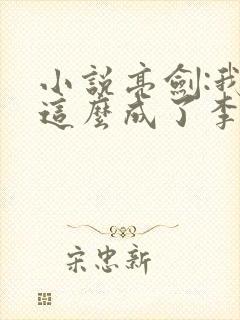 小說亮劍:我
這麼成了李
宋忠新